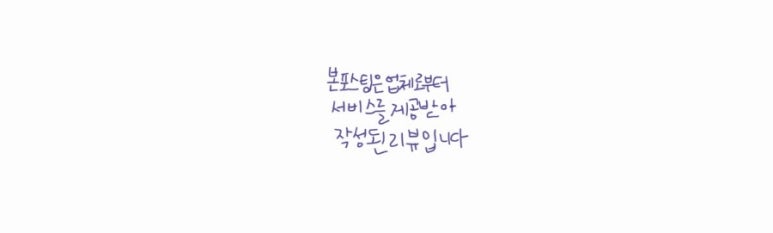 본포스팅은업체로부터
서비스를 제공받아
작성된 리뷰입니다